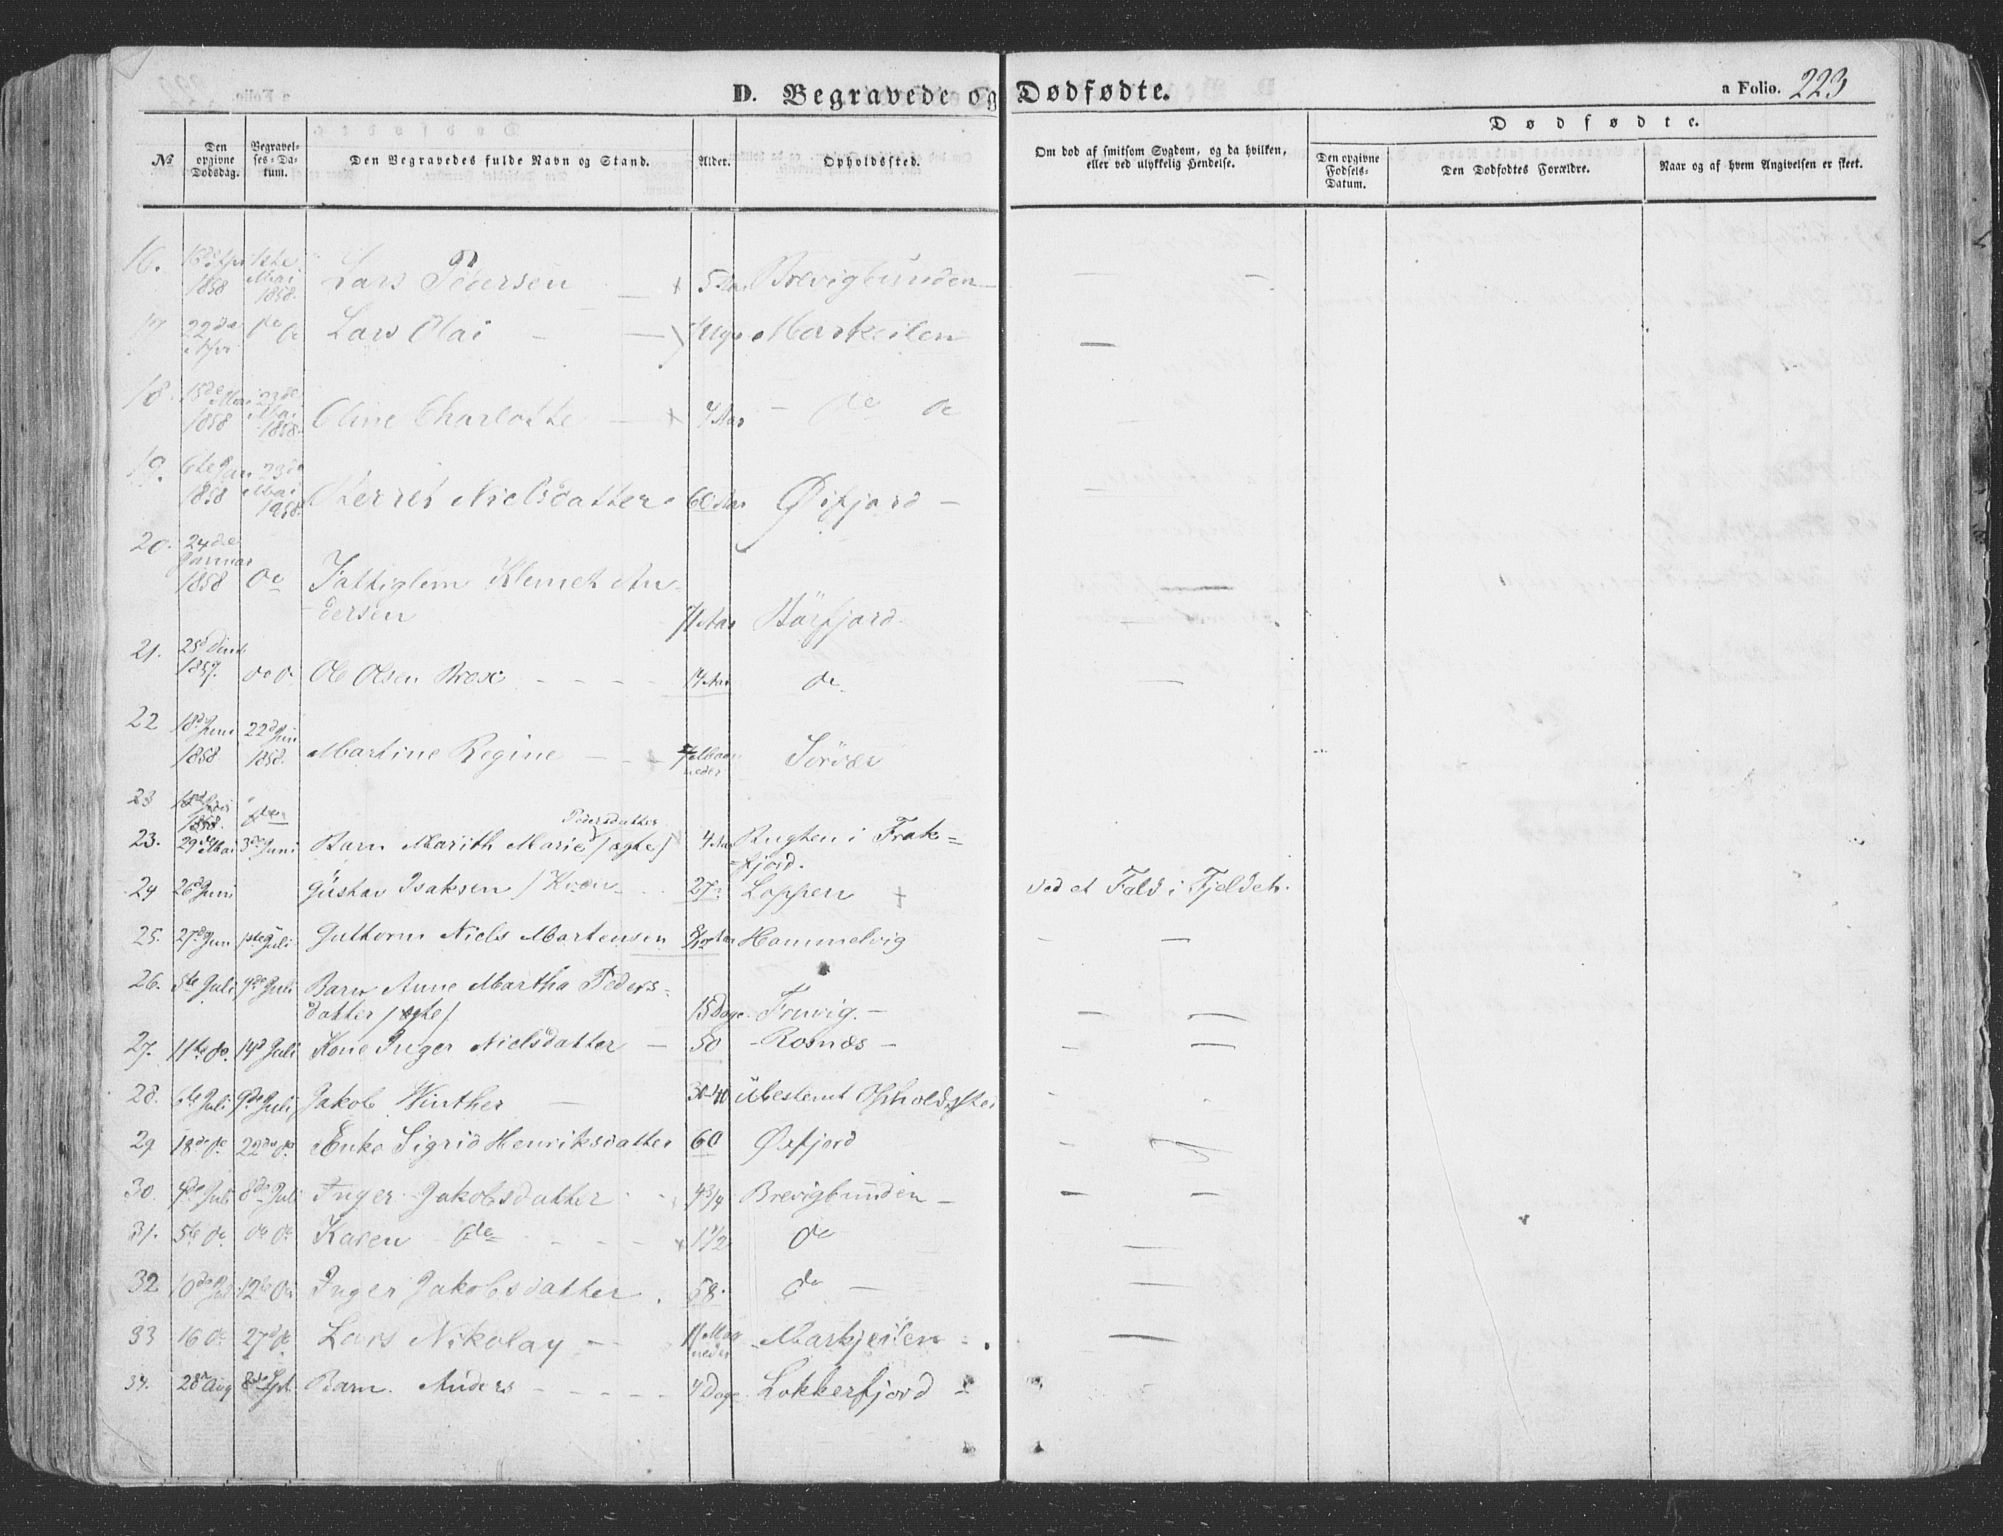 D. Begravede og Dødfødte.
a Folio. 223
No
Den opgivne Dødsdag.
Begravelses-Datum.
Den Begravedes fulde Navn og Stand.
Alder.
Opholdssted.
Om død af smitsom Sygdom, og da hvilken, eller ved ulykkelig Hendelse.
Dødfødte.
Den opgivne Fødsels-Datum.
Den Dødfødtes Forældre.
Naar og af hvem Angivelsen er skeet.
16. 1858 1ste Mai 1858. Lars Pedersen 5 Aar Brevigbunden
17 22de Apr do do Lars Olai Markeilen
18. 15de Mai 1858 23de Mai 1858. Oline Charlotte 7 Aar do do
19. 6te Jan 1858 23de Mai 1858. Nielsdatter 60 Aar Øxfjord
20. 24de Januar 1858 do Fattiglem Klemet An-
dersen 71 Aar Bärfjord.
21. 1857. do do Ole Olsen 17 Aar do.
22 18de Juni 1858 22d Juni 1858. Martine Regine 7 Maaneder Sörvær
23 18d Juni 1858. do
23. 29de Mai 3de Juni Barn Marith Marie Pedersdatter /ægte/ 4 Aar Bugten i Frak-
fjord.
24 26d Juni Gustav Isaksen /Kvæn 27 Loppen Ved et Fald i Fjeldet.
25. 27d Jun 1ste Juli Guttorm Niels Mortensen 8/12 Aar Hammelvig
26. 5te Juli 9de Juli Barn Anne Martha Peders-
datter /ægte/ 15 Dage Fruvig.
27. 11te do. 14d Juli Kone Inger Nielsdatter 50 Rosnæs
28. 6te Juli 9de Juli Jakob Winther 30-40 Ubestemt Opholdssted
29 18de do 22de do Enke Sigrid Henriksdatter 60 Øxfjord
30. 4de Juli 8de Juli Inger Jakobsdatter 4 3/4 Brevigbunden
31. 5te do do do Karen do 1 1/2 do
32 10de Juli 12te do Inger Jakobsdatter 58. do
33 16 do 27d do Lars Nikolay 11 Maaneder Markjeilen
34. 28de Aug Spt. Barn Anders 7 Dage Lokkerfjord